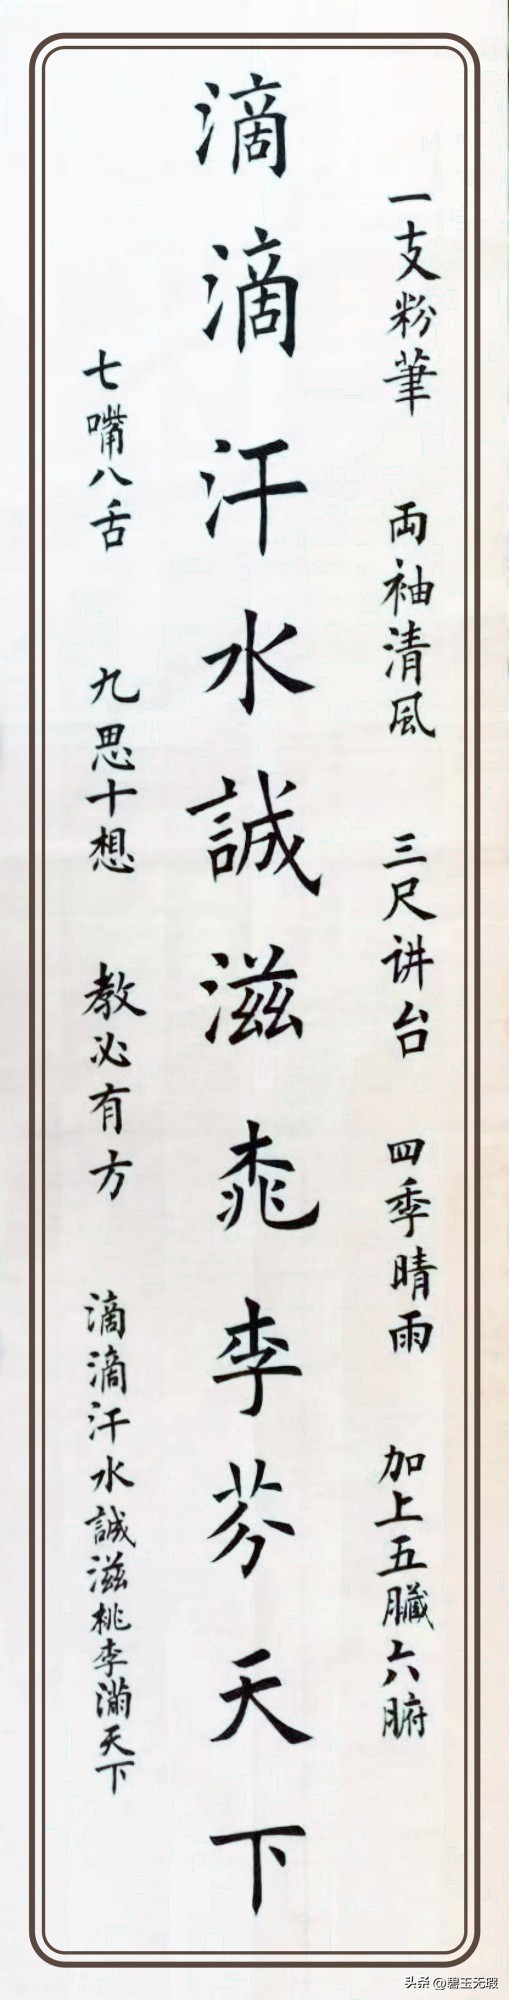 一支粉筆 両袖清風 三尺讲台 四季晴雨 加上五臟六腑
滴滴汗水誠滋桃李芬天下
七嘴八舌 九思十想 教必有方 滴滴汗水誠滋桃李滿天下
头条 @碧玉无瑕